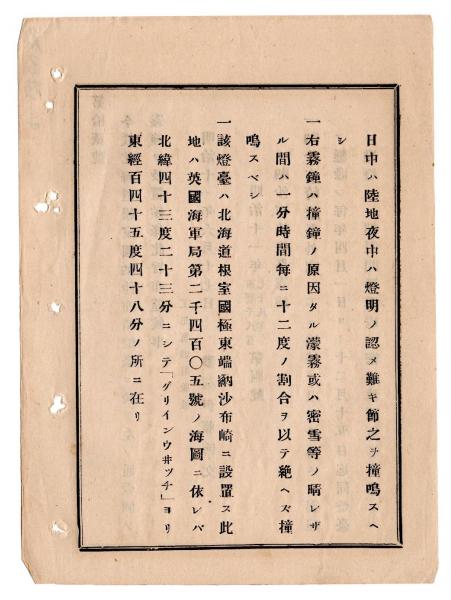 日中ハ陸地夜中ハ燈明ノ認メ難キ節之ヲ撞鳴スヘ
シ
一右霧鐘ハ撞鐘ノ原因タル濛霧或ハ密雪等ノ晴レザ
ル間ハ一分時間每ニ十二度ノ割合ヲ以テ絶ヘズ撞
鳴スベシ
一該燈臺ハ北海道根室國極東端納沙布崎ニ設置ス此
地ハ英國海軍局第二千四百〇五號ノ海圖ニ依レバ
北緯四十三度二十三分ニシテ「グリインウ井ツチ」ヨリ
東經百四十五度四十八分ノ所ニ在リ